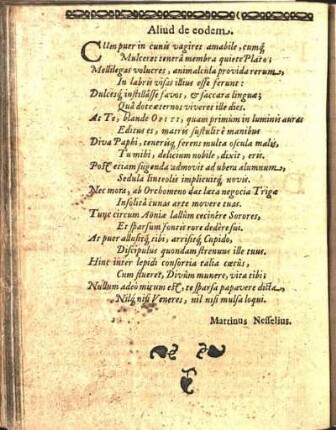 Aliud de eodem.
CUm puer in cunis vagires amabile, cumq́;
Mulceret tenerâ membra quiete Plato;
Mellilegas volucres, animalcula provida rerum,
In labris visas illius esse ferunt:
Dulcesq́; instillâsse favos, & saccara linguæ;
Quâ doteæternos viveret ille dies.
At Te, blande OPITI, quam primùm in luminis auras
Editus es, matris sustulit è manibus
Diva Paphi, teneriq́; ferens multa oscula malis,
Tu mihi, delicium nobile, dixit, eris.
Post etiam sugenda admovit ad ubera alumnum,
Sedula linteolis implicuitq́; novis.
Nec mora, ab Orchomeno data læta negocia Triga
Insolitâ cunas arte movere tuas.
Tunc circum Aoniæ lallùm cecinêre Sorores,
Et sparsum fontis rore dedêre sui.
At puer allusitq́; tibi, arrisitq́; Cupido,
Discipulus quondam strenuus ille tuus.
Hinc inter lepidi consortia talia cœtûs,
Cum flueret, Divûm munere, vita tibi;
Nullum adeò mirum est, te sparsa papavere dicta,
Nilq́; nisi Veneres, nil nisi mulsa loqui.
Martinus Nesselius.